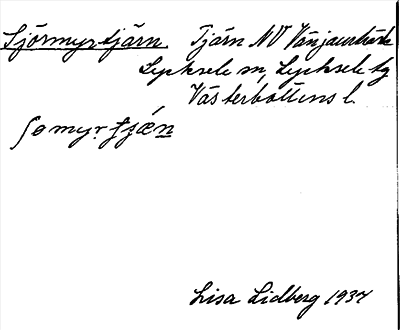 Sjörmyrtjärn. Tjärn NV Vänjaurbäck
Lycksele sn, Lycksele tg
Västerbottens l.
Lisa Lidberg 1934